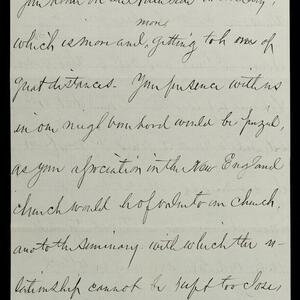 more
which is more and, getting to be one of
great distances. Your presence with us
in our neighborhood would be prized,
as your association in the New England
church would be of value to our church,
and to the seminary with which the re-
lationship cannot be kept too close